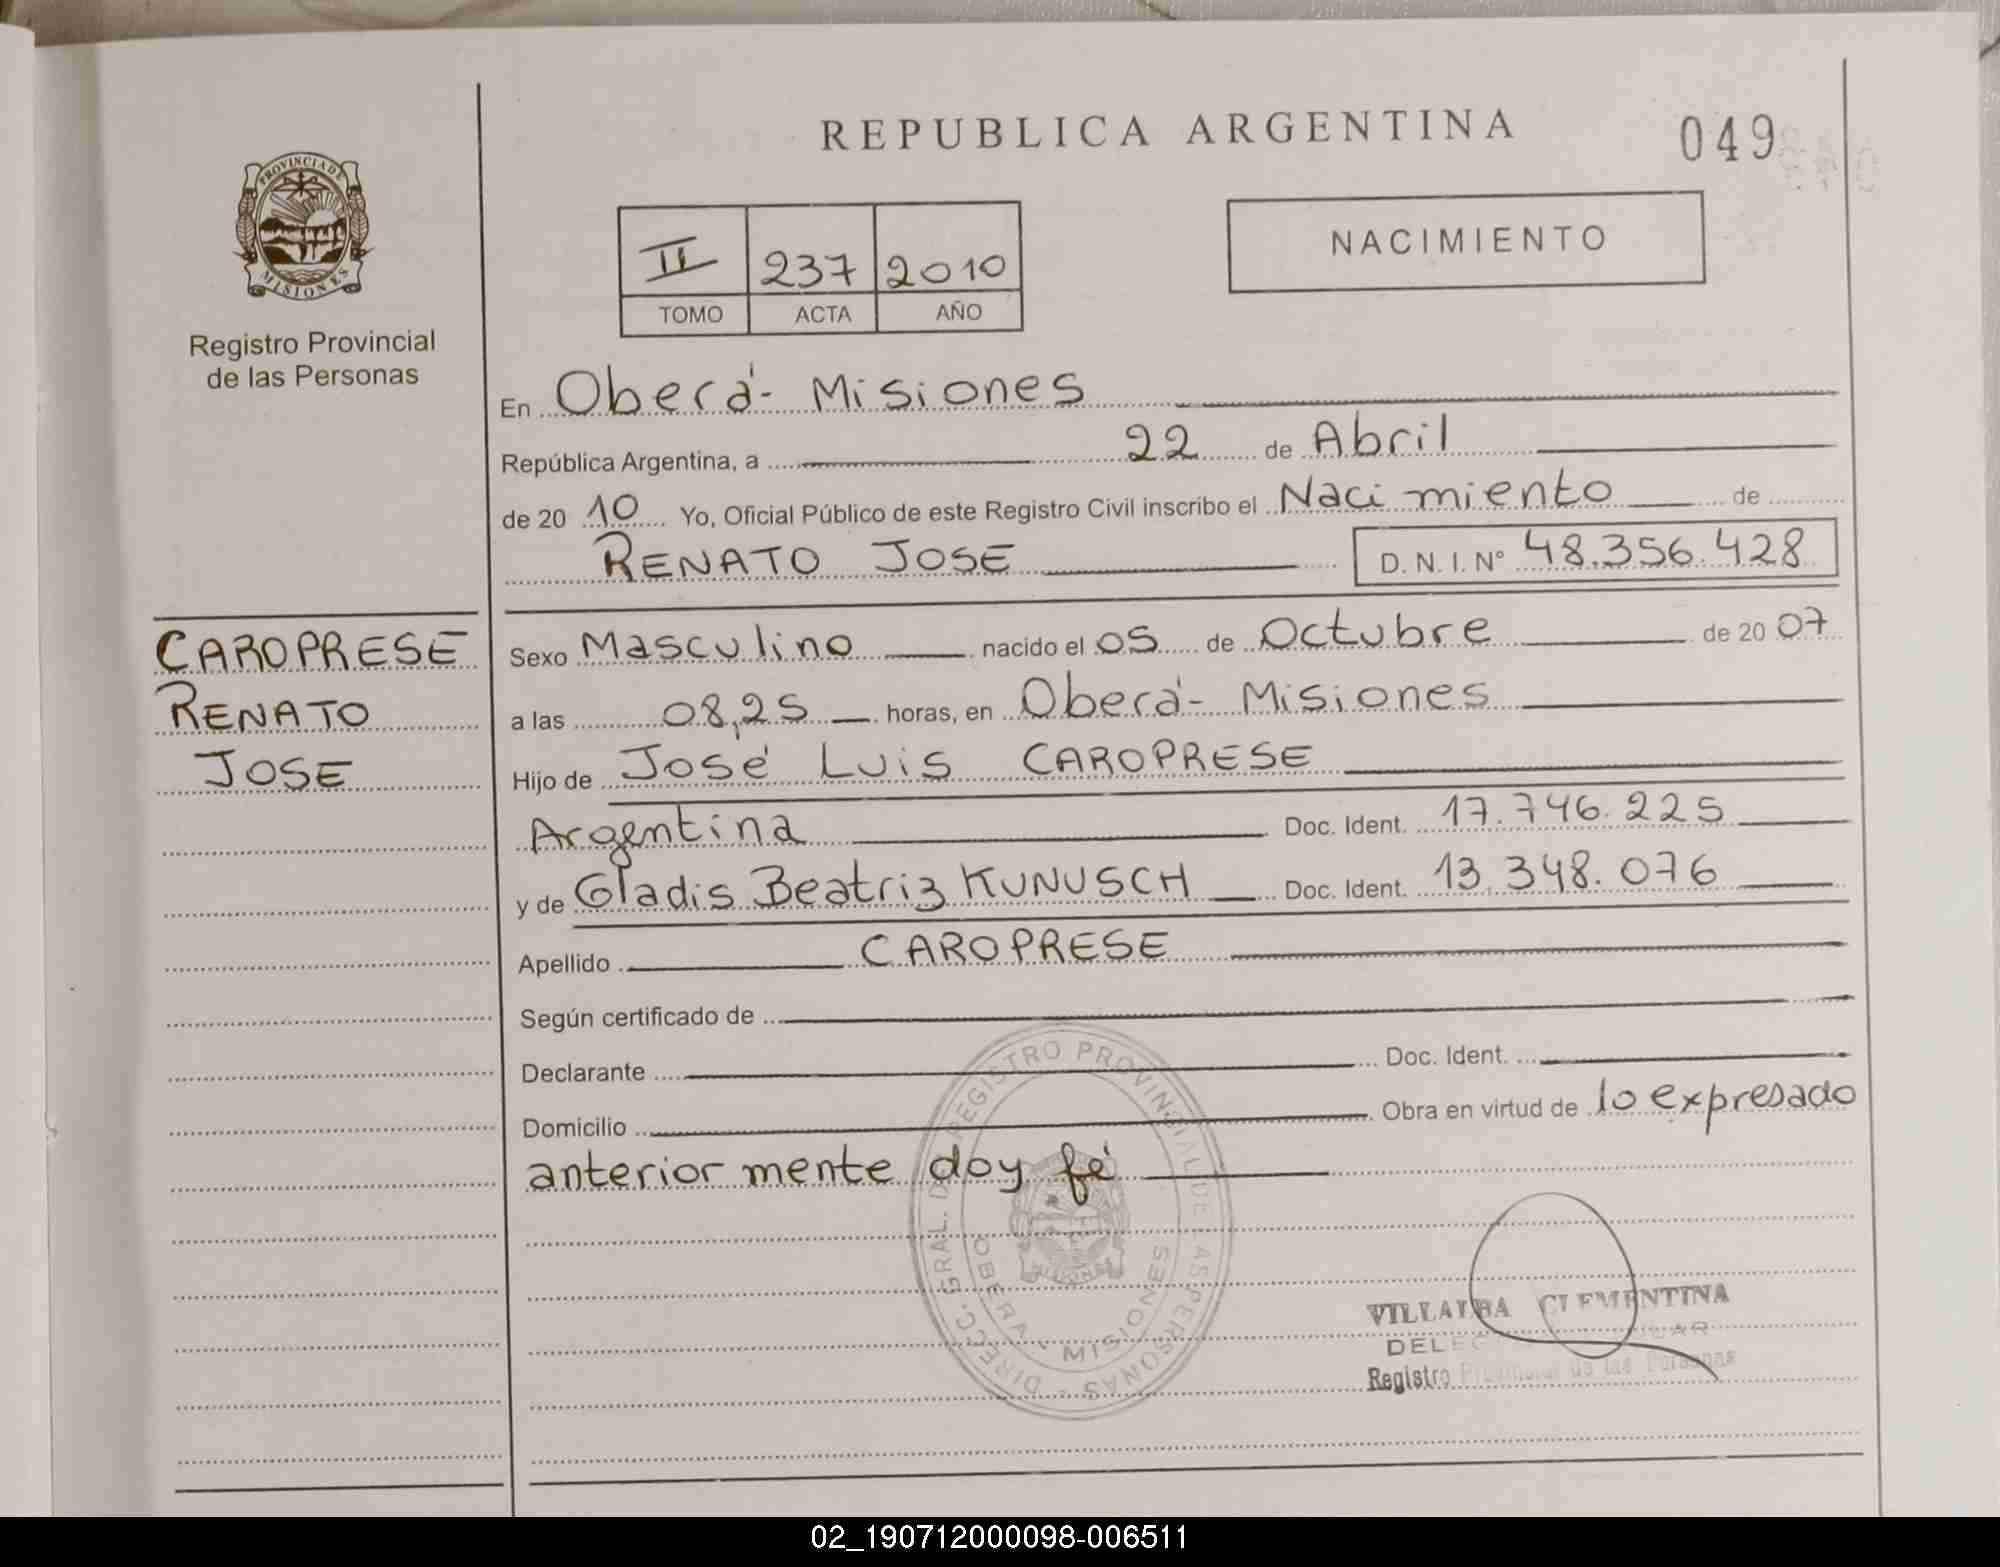 REPUBLICA ARGENTINA
049
PROVINCIA DE
MISIONES
Registro Provincial
de las Personas
NACIMIENTO
II 237 2010
TOMO ACTA AÑO
En Oberá- Misiones
República Argentina, a 22 de Abril
de 20 10 Yo, Oficial Público de este Registro Civil inscribo el Nacimiento de
RENATO JOSE D.N.I. Nº 48.356.428
CAROPRESE
RENATO
JOSE
Sexo Masculino nacido el 05 de Octubre de 20 07
a las 08,25 horas, en Oberá- Misiones
Hijo de José Luis CAROPRESE
Argentina Doc. Ident. 17.746.225
y de Gladis Beatriz KUNUSCH Doc. Ident. 13.348.076
Apellido CAROPRESE
Según certificado de
Declarante Doc. Ident.
Domicilio Obra en virtud de lo expresado
anterior mente doy fé
DIRECC. GRAL. DE REGISTRO PROVINCIAL DE LAS PERSONAS -
OBERA - MISIONES
VILLALBA CLEMENTINA
Registro Provincial de las Personas
02_190712000098-006511